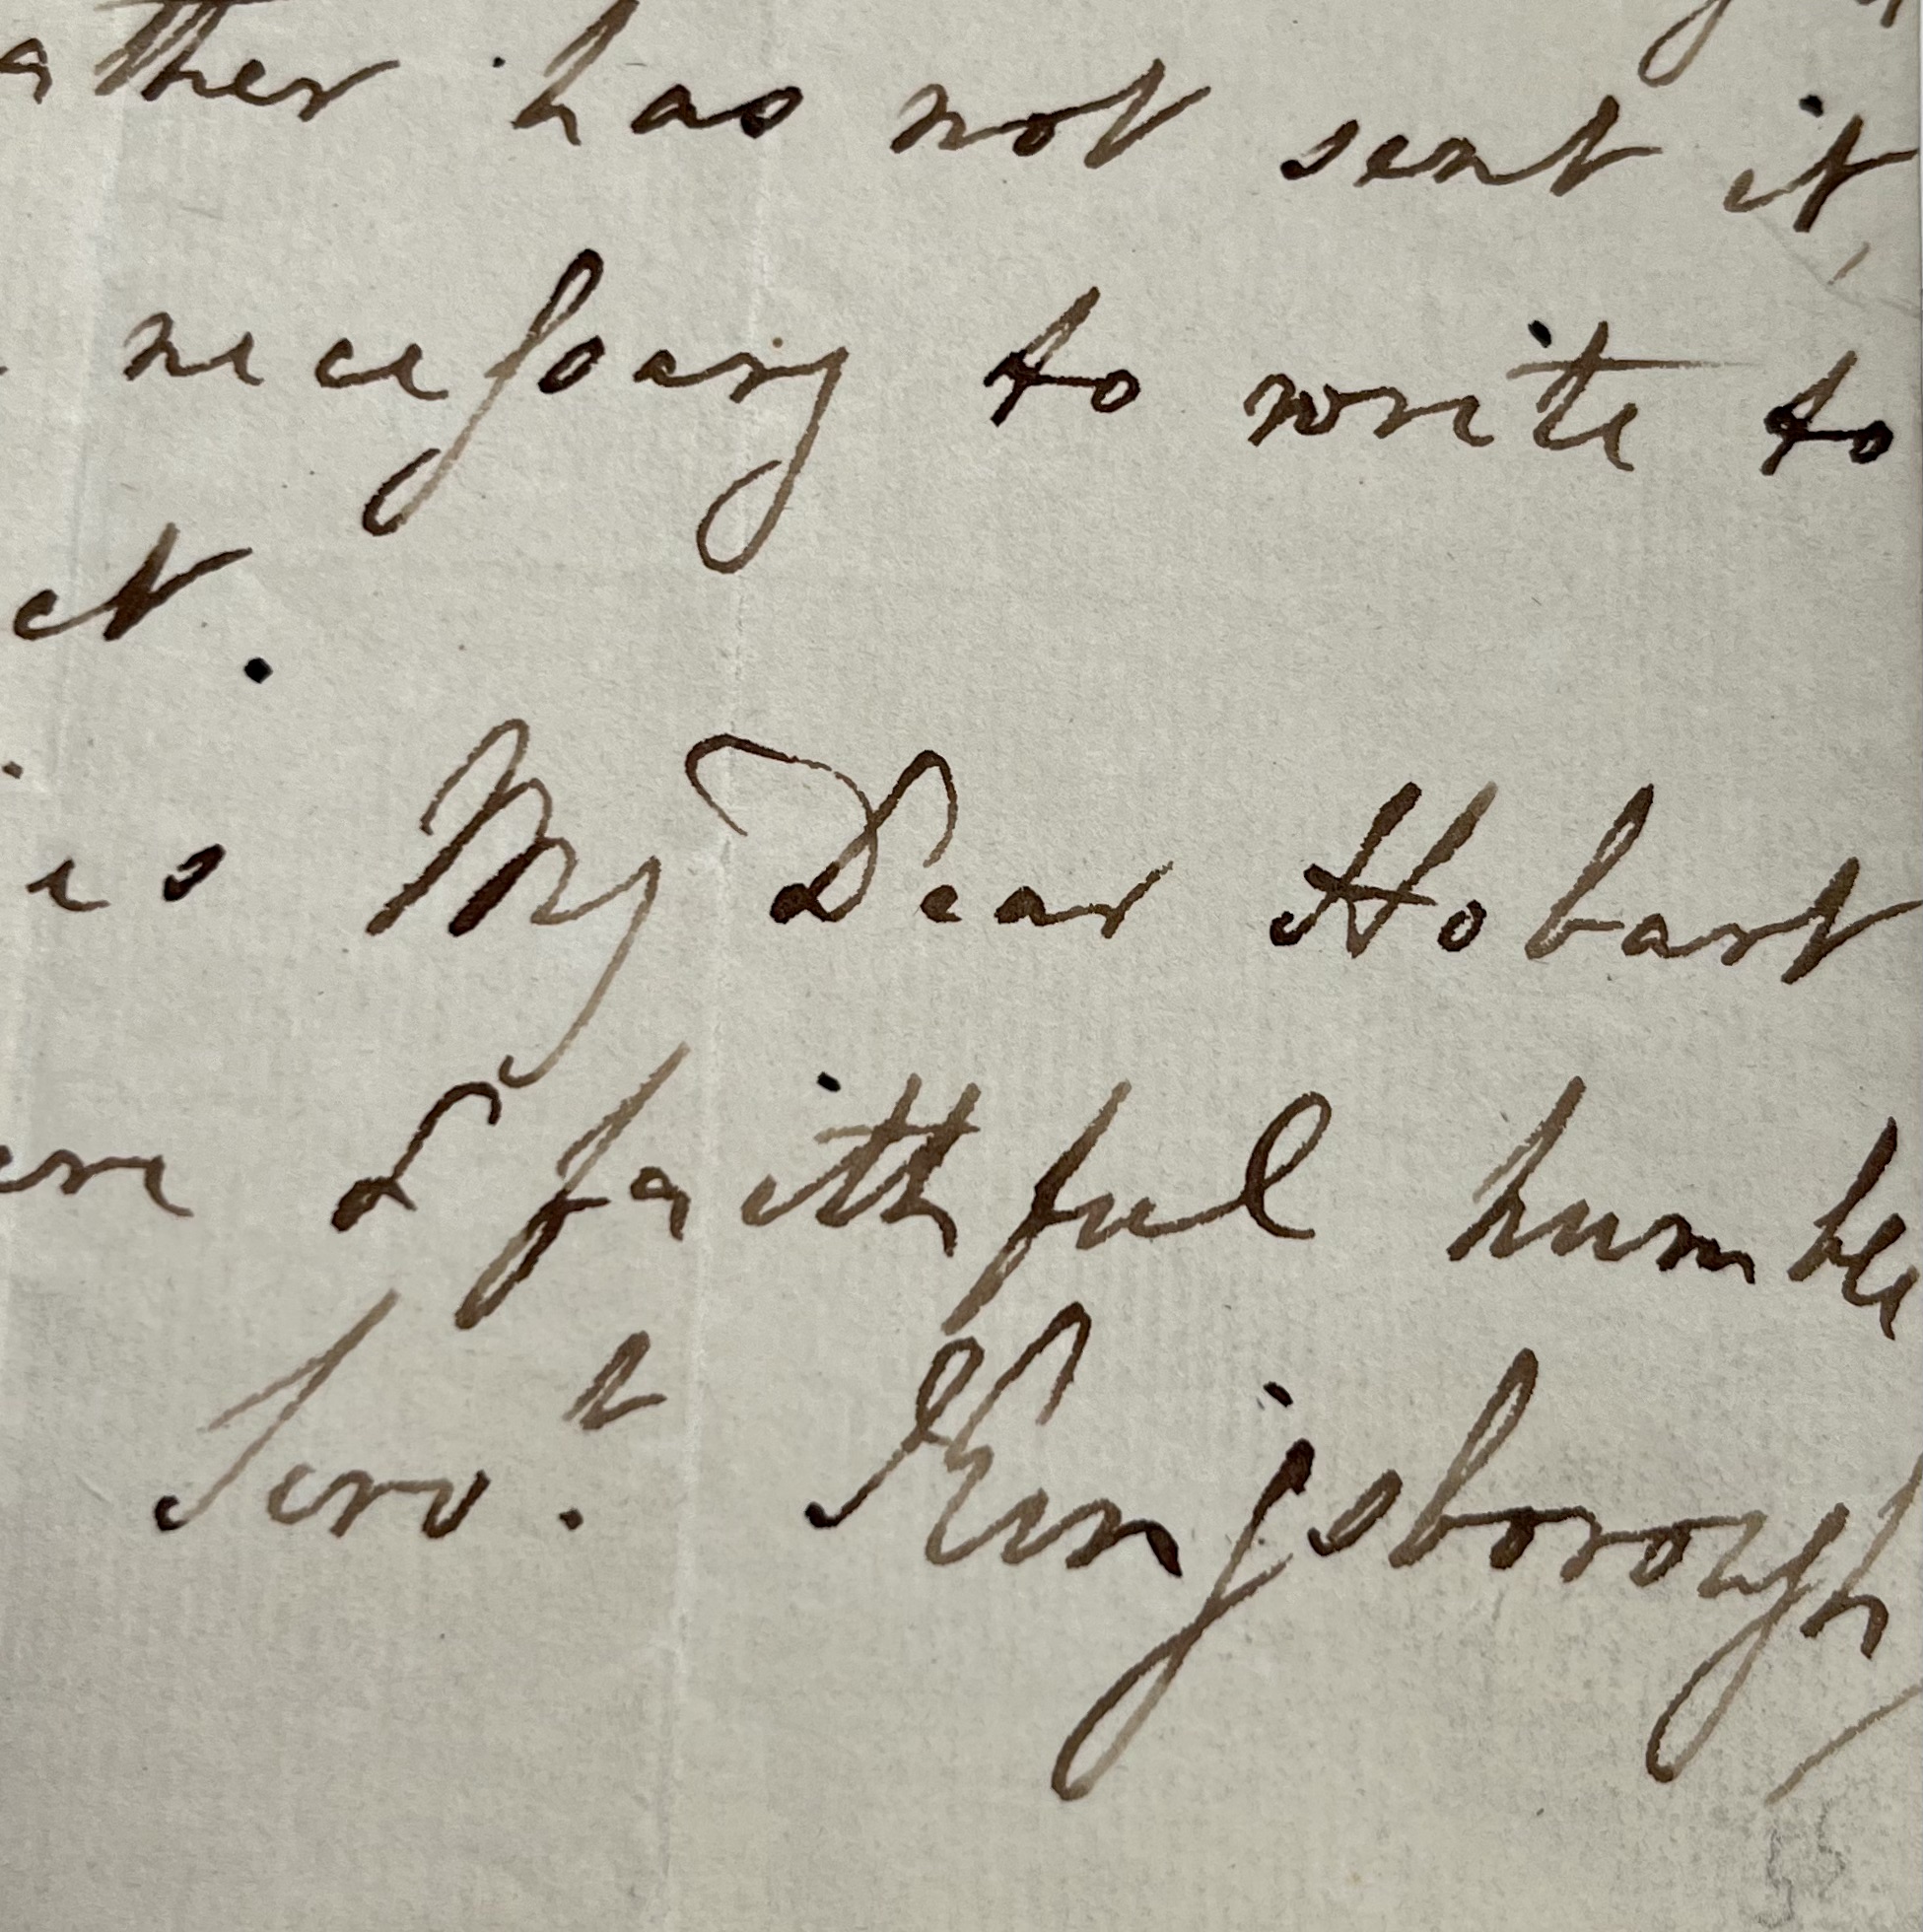 ather has not sent it,
necessary to write to
it.
is My Dear Hobart
ere & faithful humble
Servt. Kingsborough